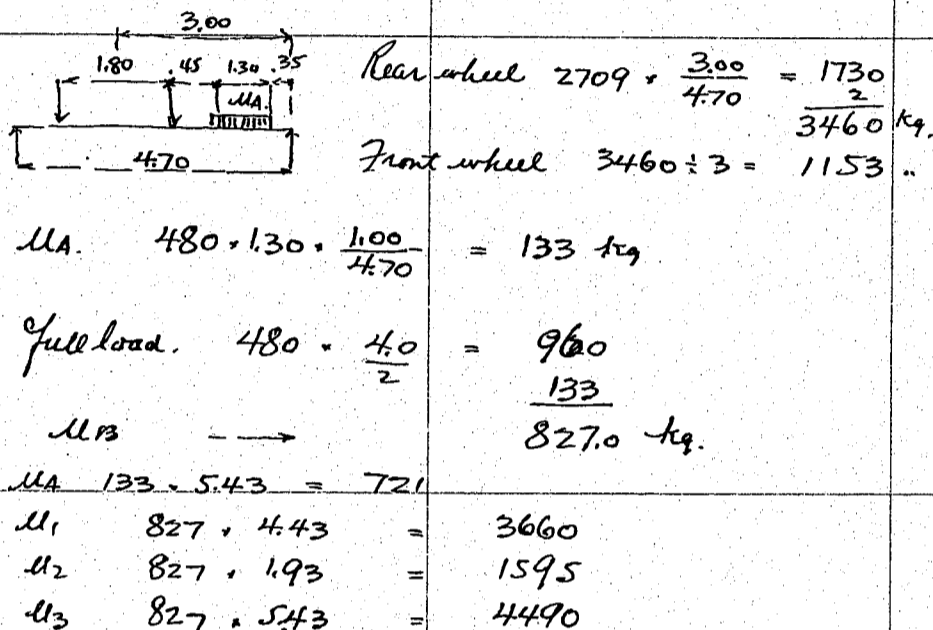 3.00
1.80 .45 1.30 .35
MA.
4.70
Rear wheel 2709 · 3.00/4.70 = 1730
2
3460 kg.
Front wheel 3460 ÷ 3 = 1153 "
MA. 480 · 1.30 · 1.00/4.70 = 133 kg
Full load. 480 · 4.0/2 = 960
133
MB → 827.0 kg.
MA 133 · 5.43 = 721
M1 827 · 4.43 = 3660
M2 827 · 1.93 = 1595
M3 827 · 5.43 = 4490